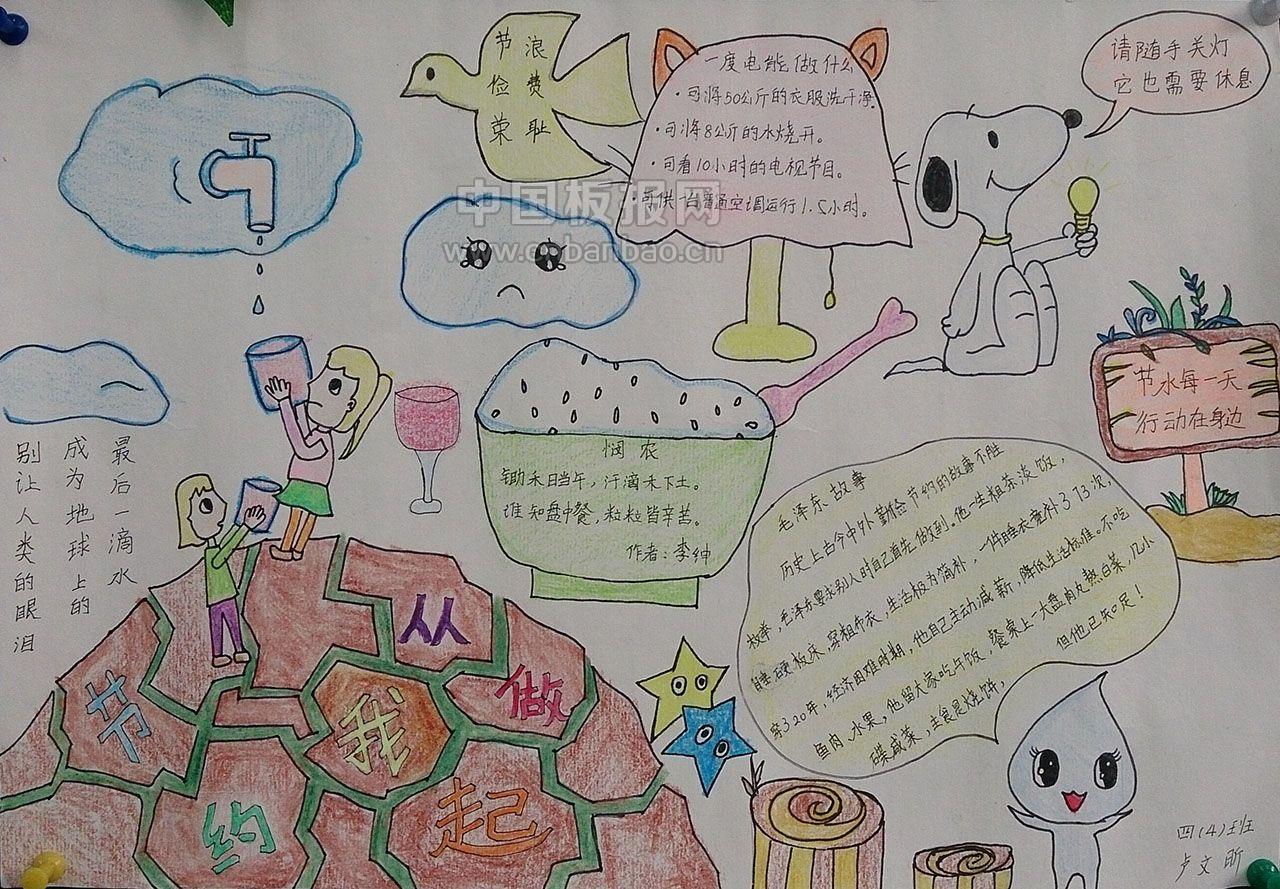 节俭荣
浪费耻
一度电能做什么
·可将50公斤的衣服洗干净.
·可将8公斤的水烧开。
·可看10小时的电视节目。
·可供一台普通空调运行1.5小时。
请随手关灯
它也需要休息
中国板报网
节水每一天
行动在身边
悯农
锄禾日当午，汗滴禾下土。
谁知盘中餐，粒粒皆辛苦。
作者：李绅
毛泽东故事
历史上古今中外勤俭节约的故事不胜
枚举，毛泽东要求别人时自己首先做到。他一生粗茶淡饭，
睡硬板床，穿粗布衣，生活极为简朴，一件睡衣竟补了73次，
穿了20年，经济困难时期，他自己主动减薪，降低生活标准。不吃
鱼肉、水果，他留大家吃午饭，餐桌上一大盘肉丸熬白菜，几小
碟咸菜，主食是烧饼，但他已知足！
别让人类的眼泪
成为地球上的
最后一滴水
节约
从我
做起
四(4)班
卢文昕